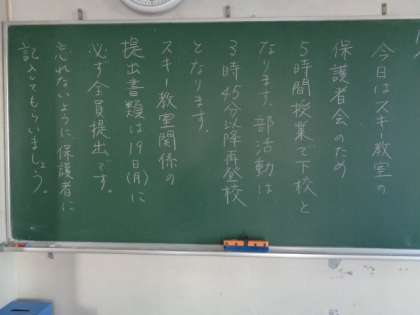 今日はスキー教室の
保護者会のため
5時間授業で下校と
なります。部活動は
3時45分以降再登校
となります。
スキー教室関係の
提出書類は19日(月)に
必ず全員提出です。
忘れないように、保護者に
記入してもらいましょう。